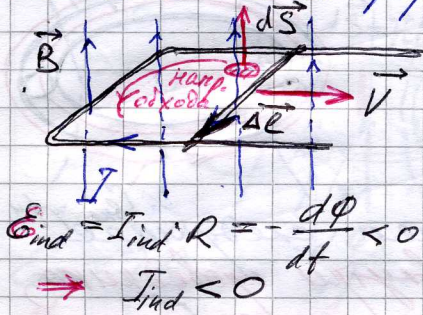 dS⃗
B⃗
напр
обхода
V⃗
Δℓ⃗
I
Ɛind = Iind R = - dФ/dt < 0
⇒ Iind < 0